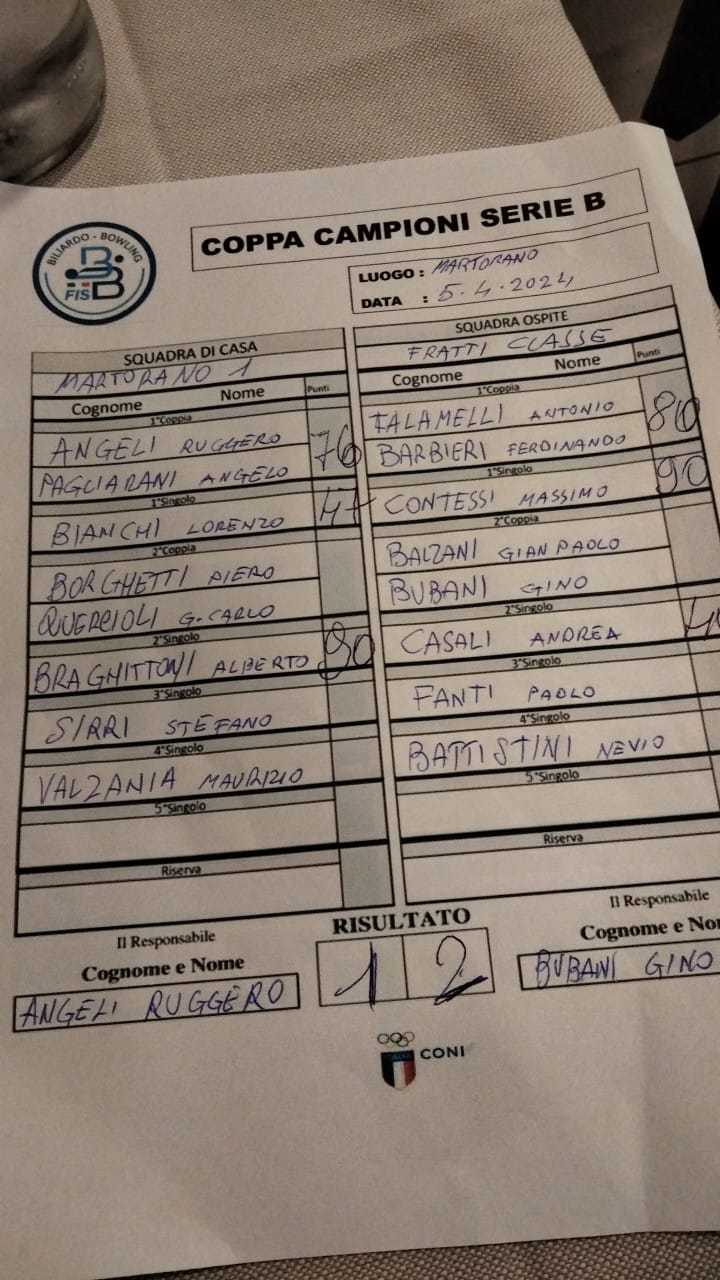 BILIARDO - BOWLING
FISBB
COPPA CAMPIONI SERIE B
LUOGO : MARTORANO
DATA : 5.4.2024
SQUADRA DI CASA
MARTORANO 1
Cognome Nome Punti
1°Coppia
ANGELI RUGGERO 76
PAGLIARANI ANGELO
1°Singolo
BIANCHI LORENZO
2°Coppia
BORGHETTI PIERO
QUERCIOLI G.CARLO
2°Singolo
BRAGHITTONI ALBERTO 90
3°Singolo
SIRRI STEFANO
4°Singolo
VALZANIA MAURIZIO
5°Singolo
Riserva
Il Responsabile
Cognome e Nome
ANGELI RUGGERO
SQUADRA OSPITE
FRATTI CLASSE
Cognome Nome Punti
1°Coppia
TALAMELLI ANTONIO 80
BARBIERI FERDINANDO
1°Singolo
CONTESSI MASSIMO 90
2°Coppia
BALZANI GIAN PAOLO
BUBANI GINO
2°Singolo
CASALI ANDREA
3°Singolo
FANTI PAOLO
4°Singolo
BATTISTINI NEVIO
5°Singolo
Riserva
Il Responsabile
Cognome e No
BUBANI GINO
RISULTATO
1 2
ITALIA
CONI